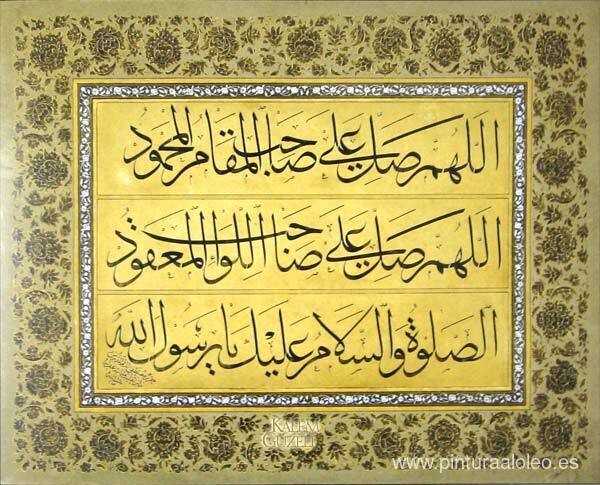 اللهم صل على صاحب المقام المحمود
اللهم صل على صاحب اللواء المعقود
الصلوة والسلام عليك يا رسول الله
KALEM GÜZELİ
www.pinturaaloleo.es